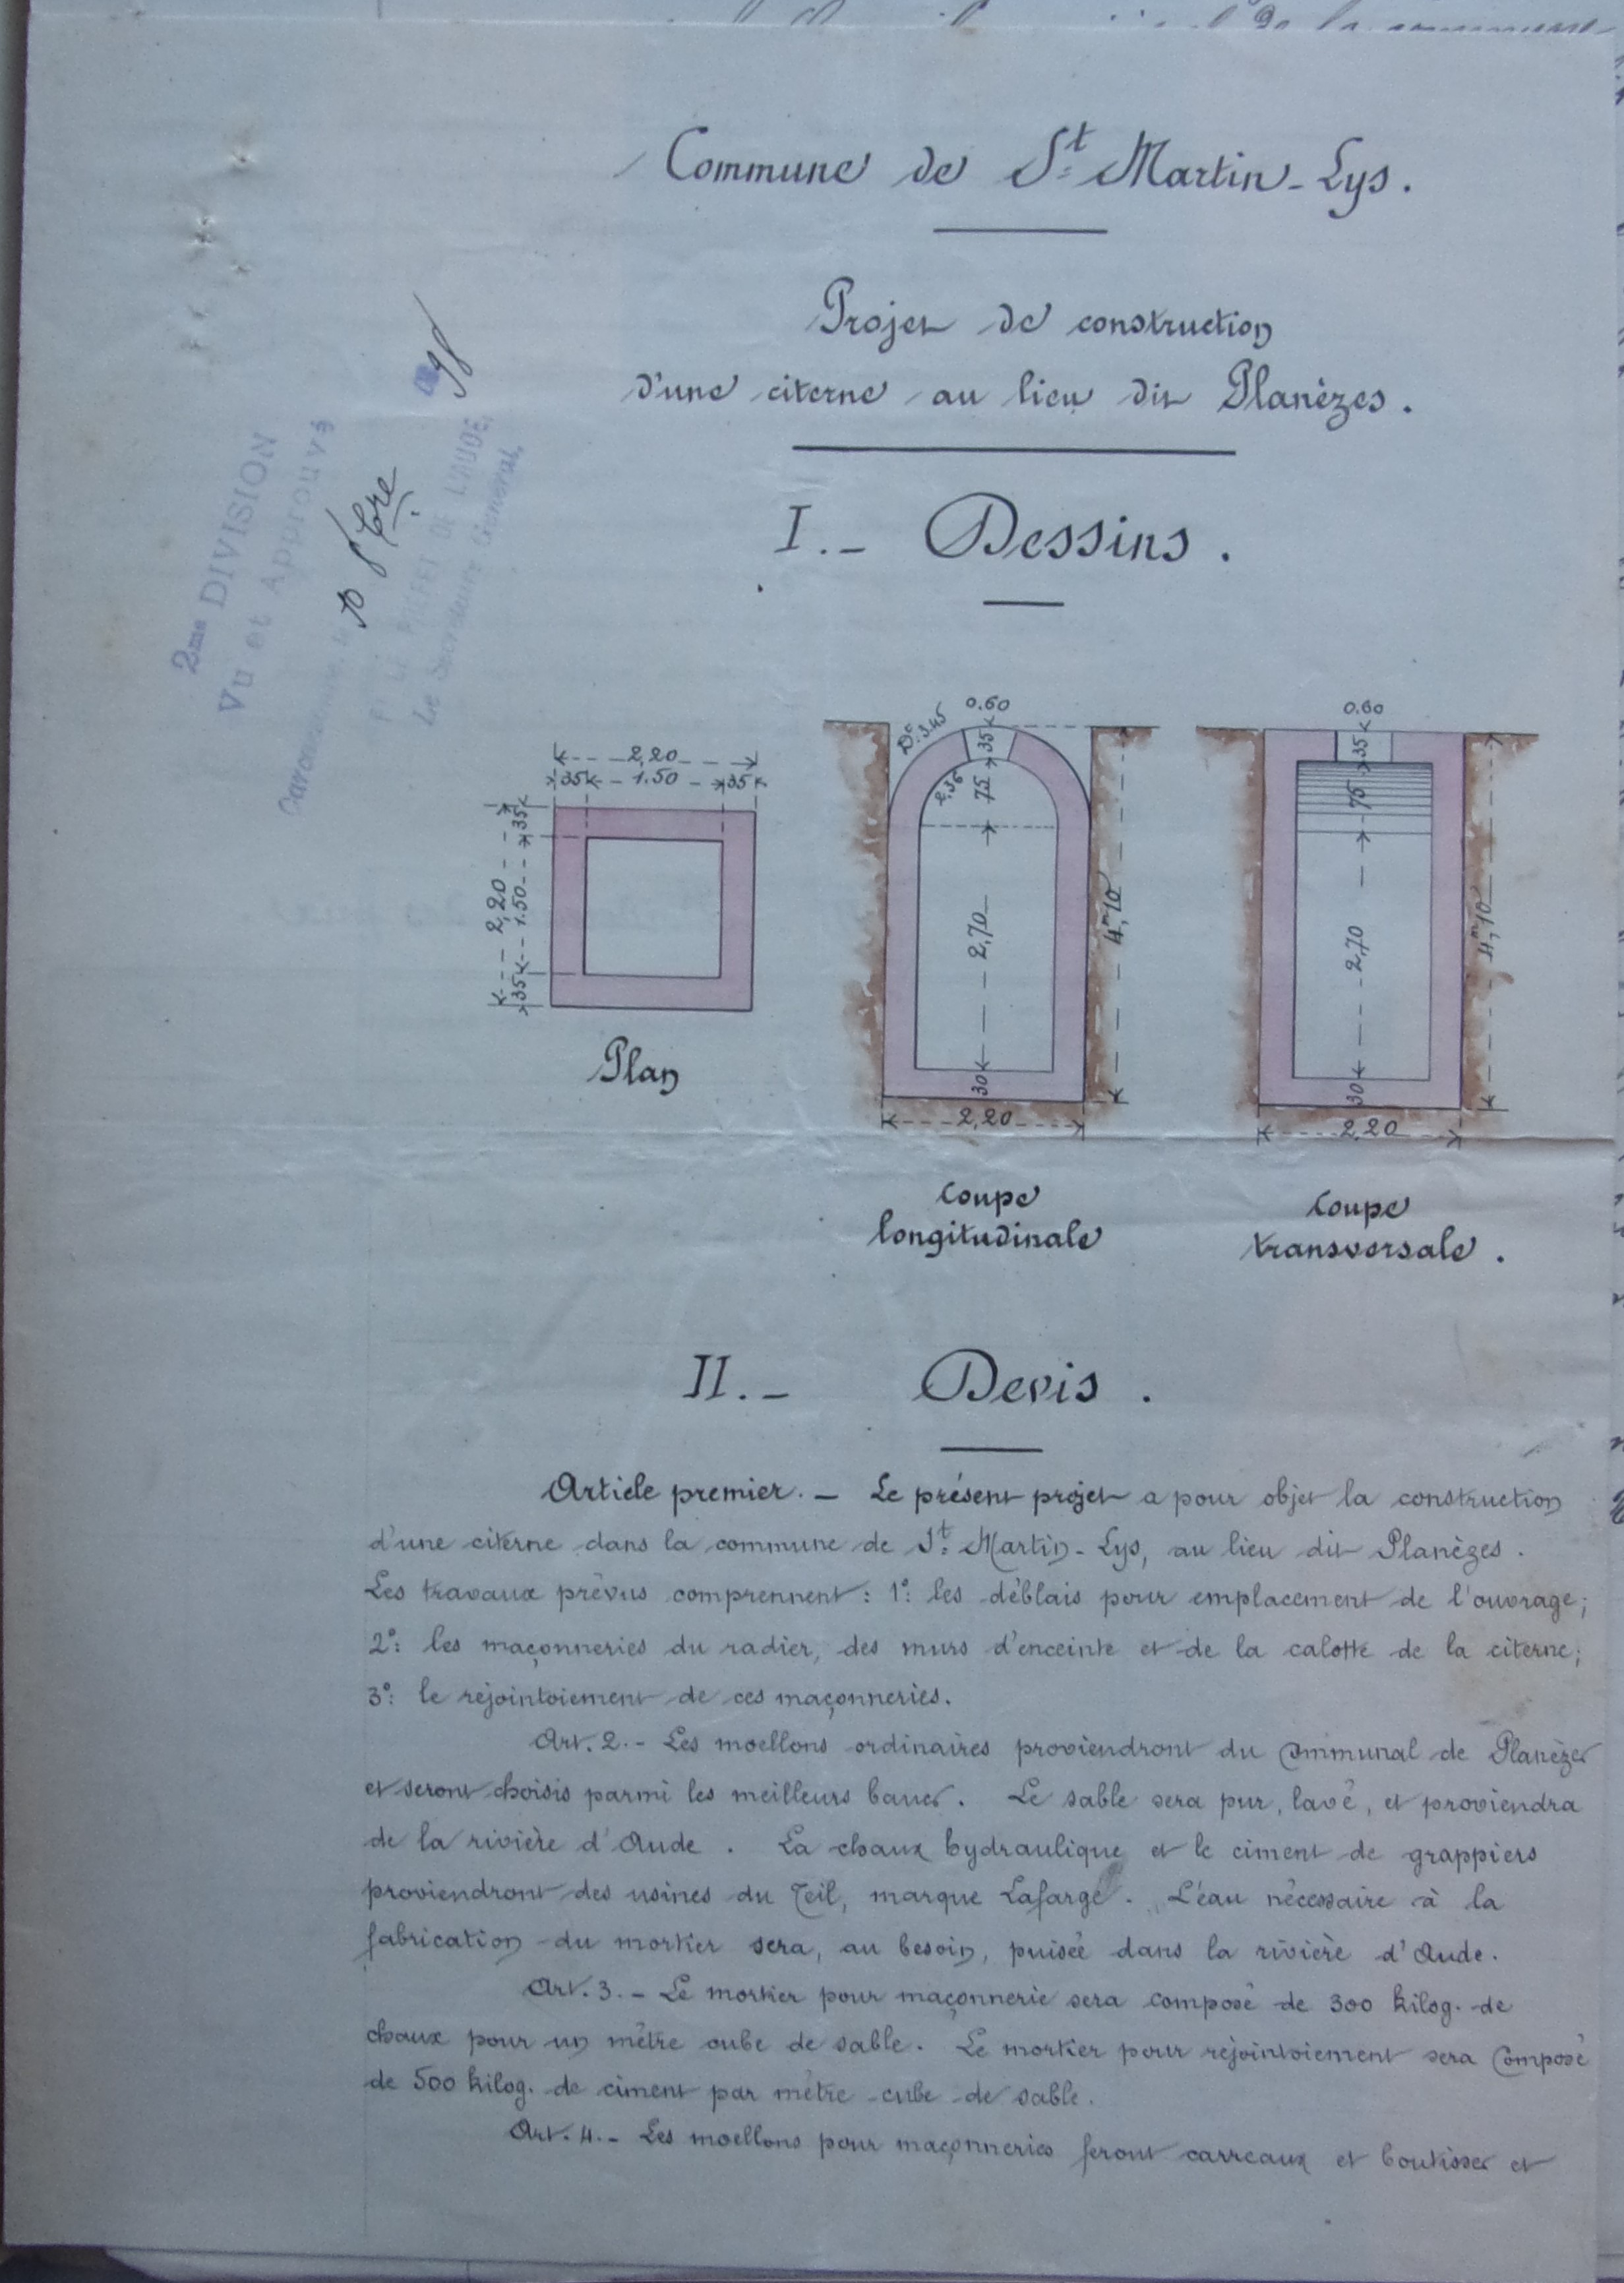 de la commune
Commune de St Martin-Lys.
Projet de construction
d'une citerne au lieu dit Planèzes.
2me DIVISION
Vu et Approuvé
Carcassonne, le 10 8bre 98
LE PRÉFET DE L'AUDE,
Le Secrétaire Général,
I.- Dessins.
2,20
35 1.50 35
35
1.50
35
2,20
Plan
0.60
Dr: 3.45
35
2,36
75
2,70
30
4m,10
2,20
Coupe
longitudinale
0.60
35
75
2,70
30
4m,10
2,20
Coupe
transversale.
II.- Devis.
Article premier. - Le présent projet a pour objet la construction
d'une citerne dans la commune de St Martin-Lys, au lieu dit Planèzes.
Les travaux prévus comprennent : 1°: les déblais pour emplacement de l'ouvrage;
2°: les maçonneries du radier, des murs d'enceinte et de la calotte de la citerne;
3°: le rejointoiement de ces maçonneries.
Art. 2.- Les moellons ordinaires proviendront du communal de Planèzes
et seront choisis parmi les meilleurs bancs. Le sable sera pur, lavé, et proviendra
de la rivière d'Aude. La chaux hydraulique et le ciment de grappiers
proviendront des usines du Teil, marque Lafarge. L'eau nécessaire à la
fabrication du mortier sera, au besoin, puisée dans la rivière d'Aude.
Art. 3.- Le mortier pour maçonnerie sera composé de 300 kilog. de
chaux pour un mètre cube de sable. Le mortier pour rejointoiement sera composé
de 500 kilog. de ciment par mètre cube de sable.
Art. 4.- Les moellons pour maçonneries feront carreaux et boutisses et